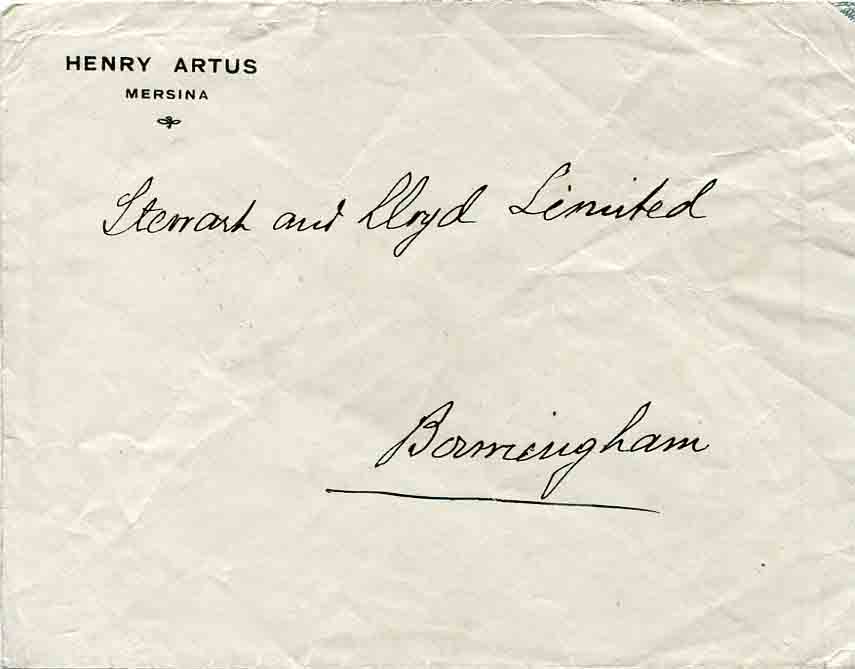 HENRY ARTUS
MERSINA
Stewart and Lloyd Limited
Bormingham